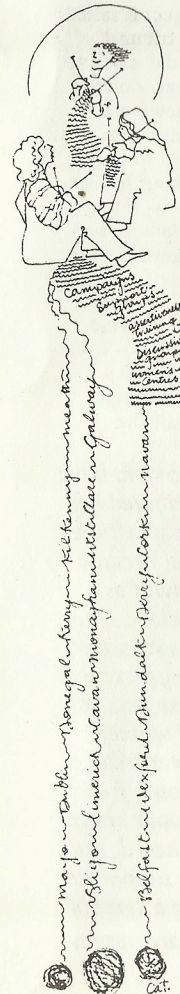 Campaigns
Support
groups
assertiveness
training
Discussion
groups
women's
Centres
Mayo Dublin Donegal Kerry Kilkenny Meath
Sligo Limerick Cavan Monaghan Westclare Galway
Belfast Wexford Dundalk Derry Cork Navan
Cat.